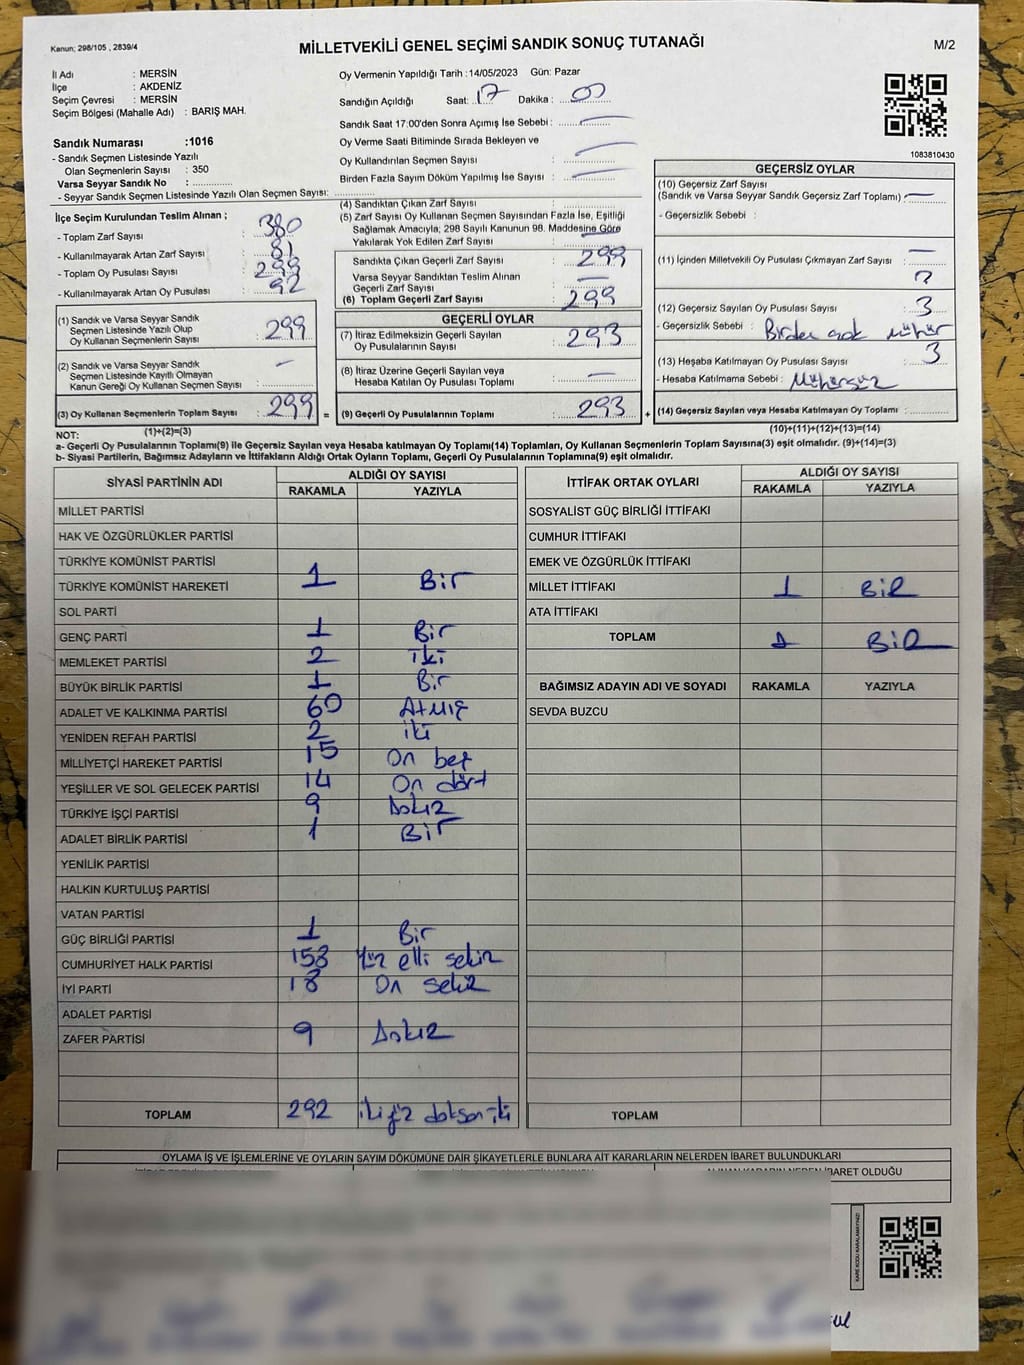 Kanun; 298/105 , 2839/4
MİLLETVEKİLİ GENEL SEÇİMİ SANDIK SONUÇ TUTANAĞI
M/2
İl Adı : MERSİN
İlçe : AKDENİZ
Seçim Çevresi : MERSİN
Seçim Bölgesi (Mahalle Adı) : BARIŞ MAH.
Oy Vermenin Yapıldığı Tarih :14/05/2023 Gün: Pazar
Sandığın Açıldığı Saat: 17 Dakika : 00
Sandık Saat 17:00'den Sonra Açımış İse Sebebi : —
Oy Verme Saati Bitiminde Sırada Bekleyen ve
Oy Kullandırılan Seçmen Sayısı : —
Birden Fazla Sayım Döküm Yapılmış İse Sayısı : —
1083810430
Sandık Numarası :1016
- Sandık Seçmen Listesinde Yazılı
Olan Seçmenlerin Sayısı : 350
Varsa Seyyar Sandık No :
- Seyyar Sandık Seçmen Listesinde Yazılı Olan Seçmen Sayısı:
İlçe Seçim Kurulundan Teslim Alınan ;
- Toplam Zarf Sayısı : 380
- Kullanılmayarak Artan Zarf Sayısı : 81
- Toplam Oy Pusulası Sayısı :
- Kullanılmayarak Artan Oy Pusulası : 92
(1) Sandık ve Varsa Seyyar Sandık
Seçmen Listesinde Yazılı Olup
Oy Kullanan Seçmenlerin Sayısı : 299
(2) Sandık ve Varsa Seyyar Sandık
Seçmen Listesinde Kayıtlı Olmayan
Kanun Gereği Oy Kullanan Seçmen Sayısı : —
(3) Oy Kullanan Seçmenlerin Toplam Sayısı : 299 =
(1)+(2)=(3)
(4) Sandıktan Çıkan Zarf Sayısı :
(5) Zarf Sayısı Oy Kullanan Seçmen Sayısından Fazla İse, Eşitliği
Sağlamak Amacıyla; 298 Sayılı Kanunun 98. Maddesine Göre
Yakılarak Yok Edilen Zarf Sayısı : —
Sandıkta Çıkan Geçerli Zarf Sayısı : 299
Varsa Seyyar Sandıktan Teslim Alınan
Geçerli Zarf Sayısı : —
(6) Toplam Geçerli Zarf Sayısı : 299
GEÇERLİ OYLAR
(7) İtiraz Edilmeksizin Geçerli Sayılan
Oy Pusulalarının Sayısı : 293
(8) İtiraz Üzerine Geçerli Sayılan veya
Hesaba Katılan Oy Pusulası Toplamı : —
(9) Geçerli Oy Pusulalarının Toplamı : 293 +
GEÇERSİZ OYLAR
(10) Geçersiz Zarf Sayısı
(Sandık ve Varsa Seyyar Sandık Geçersiz Zarf Toplamı) : —
- Geçersizlik Sebebi :
(11) İçinden Milletvekili Oy Pusulası Çıkmayan Zarf Sayısı : —
(12) Geçersiz Sayılan Oy Pusulası Sayısı : 3
- Geçersizlik Sebebi : Birden çok mühür
(13) Hesaba Katılmayan Oy Pusulası Sayısı : 3
- Hesaba Katılmama Sebebi : Mühürsüz
(14) Geçersiz Sayılan veya Hesaba Katılmayan Oy Toplamı :
(10)+(11)+(12)+(13)=(14)
NOT:
a- Geçerli Oy Pusulalarının Toplamı(9) ile Geçersiz Sayılan veya Hesaba katılmayan Oy Toplamı(14) Toplamları, Oy Kullanan Seçmenlerin Toplam Sayısına(3) eşit olmalıdır. (9)+(14)=(3)
b- Siyasi Partilerin, Bağımsız Adayların ve İttifakların Aldığı Ortak Oyların Toplamı, Geçerli Oy Pusulalarının Toplamına(9) eşit olmalıdır.
SİYASİ PARTİNİN ADI ALDIĞI OY SAYISI
RAKAMLA YAZIYLA
MİLLET PARTİSİ
HAK VE ÖZGÜRLÜKLER PARTİSİ
TÜRKİYE KOMÜNİST PARTİSİ
TÜRKİYE KOMÜNİST HAREKETİ 1 Bir
SOL PARTİ
GENÇ PARTİ 1 Bir
MEMLEKET PARTİSİ 2 iki
BÜYÜK BİRLİK PARTİSİ 1 Bir
ADALET VE KALKINMA PARTİSİ 60 Atmış
YENİDEN REFAH PARTİSİ 2 iki
MİLLİYETÇİ HAREKET PARTİSİ 15 On beş
YEŞİLLER VE SOL GELECEK PARTİSİ 14 On dört
TÜRKİYE İŞÇİ PARTİSİ 9 Dokuz
ADALET BİRLİK PARTİSİ 1 Bir
YENİLİK PARTİSİ
HALKIN KURTULUŞ PARTİSİ
VATAN PARTİSİ
GÜÇ BİRLİĞİ PARTİSİ 1 Bir
CUMHURİYET HALK PARTİSİ 158 Yüz elli sekiz
İYİ PARTİ 18 On sekiz
ADALET PARTİSİ
ZAFER PARTİSİ 9 Dokuz
TOPLAM 292 iki yüz doksan iki
İTTİFAK ORTAK OYLARI ALDIĞI OY SAYISI
RAKAMLA YAZIYLA
SOSYALİST GÜÇ BİRLİĞİ İTTİFAKI
CUMHUR İTTİFAKI
EMEK VE ÖZGÜRLÜK İTTİFAKI
MİLLET İTTİFAKI 1 BiR
ATA İTTİFAKI
TOPLAM 1 BiR
BAĞIMSIZ ADAYIN ADI VE SOYADI RAKAMLA YAZIYLA
SEVDA BUZCU
TOPLAM
OYLAMA İŞ VE İŞLEMLERİNE VE OYLARIN SAYIM DÖKÜMÜNE DAİR ŞİKAYETLERLE BUNLARA AİT KARARLARIN NELERDEN İBARET BULUNDUKLARI
ALINAN KARARIN NEDEN İBARET OLDUĞU
KARE KODU KARALAMAYINIZ!